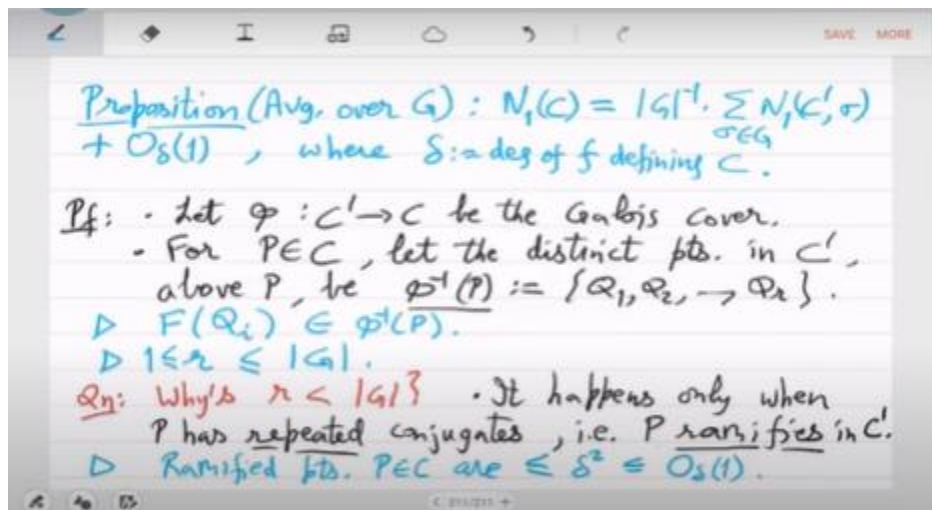 SAVE MORE
Proposition (Avg. over G) : N₁(C) = |G|⁻¹. Σ_{σ∈G} N₁(C', σ)
+ O_δ(1) , where δ := deg of f defining C .
Pf: · Let φ : C' → C be the Galois cover.
· For P∈C , let the distinct pts. in C' ,
above P, be φ⁻¹(P) := {Q₁, Q₂, → Q_r} .
▷ F(Q_i) ∈ φ⁻¹(P) .
▷ 1 ≤ r ≤ |G| .
Qn: Why's r < |G| ? · It happens only when
P has repeated conjugates , i.e. P ramifies in C'.
▷ Ramified pts. P∈C are ≤ δ² ≤ O_δ(1) .